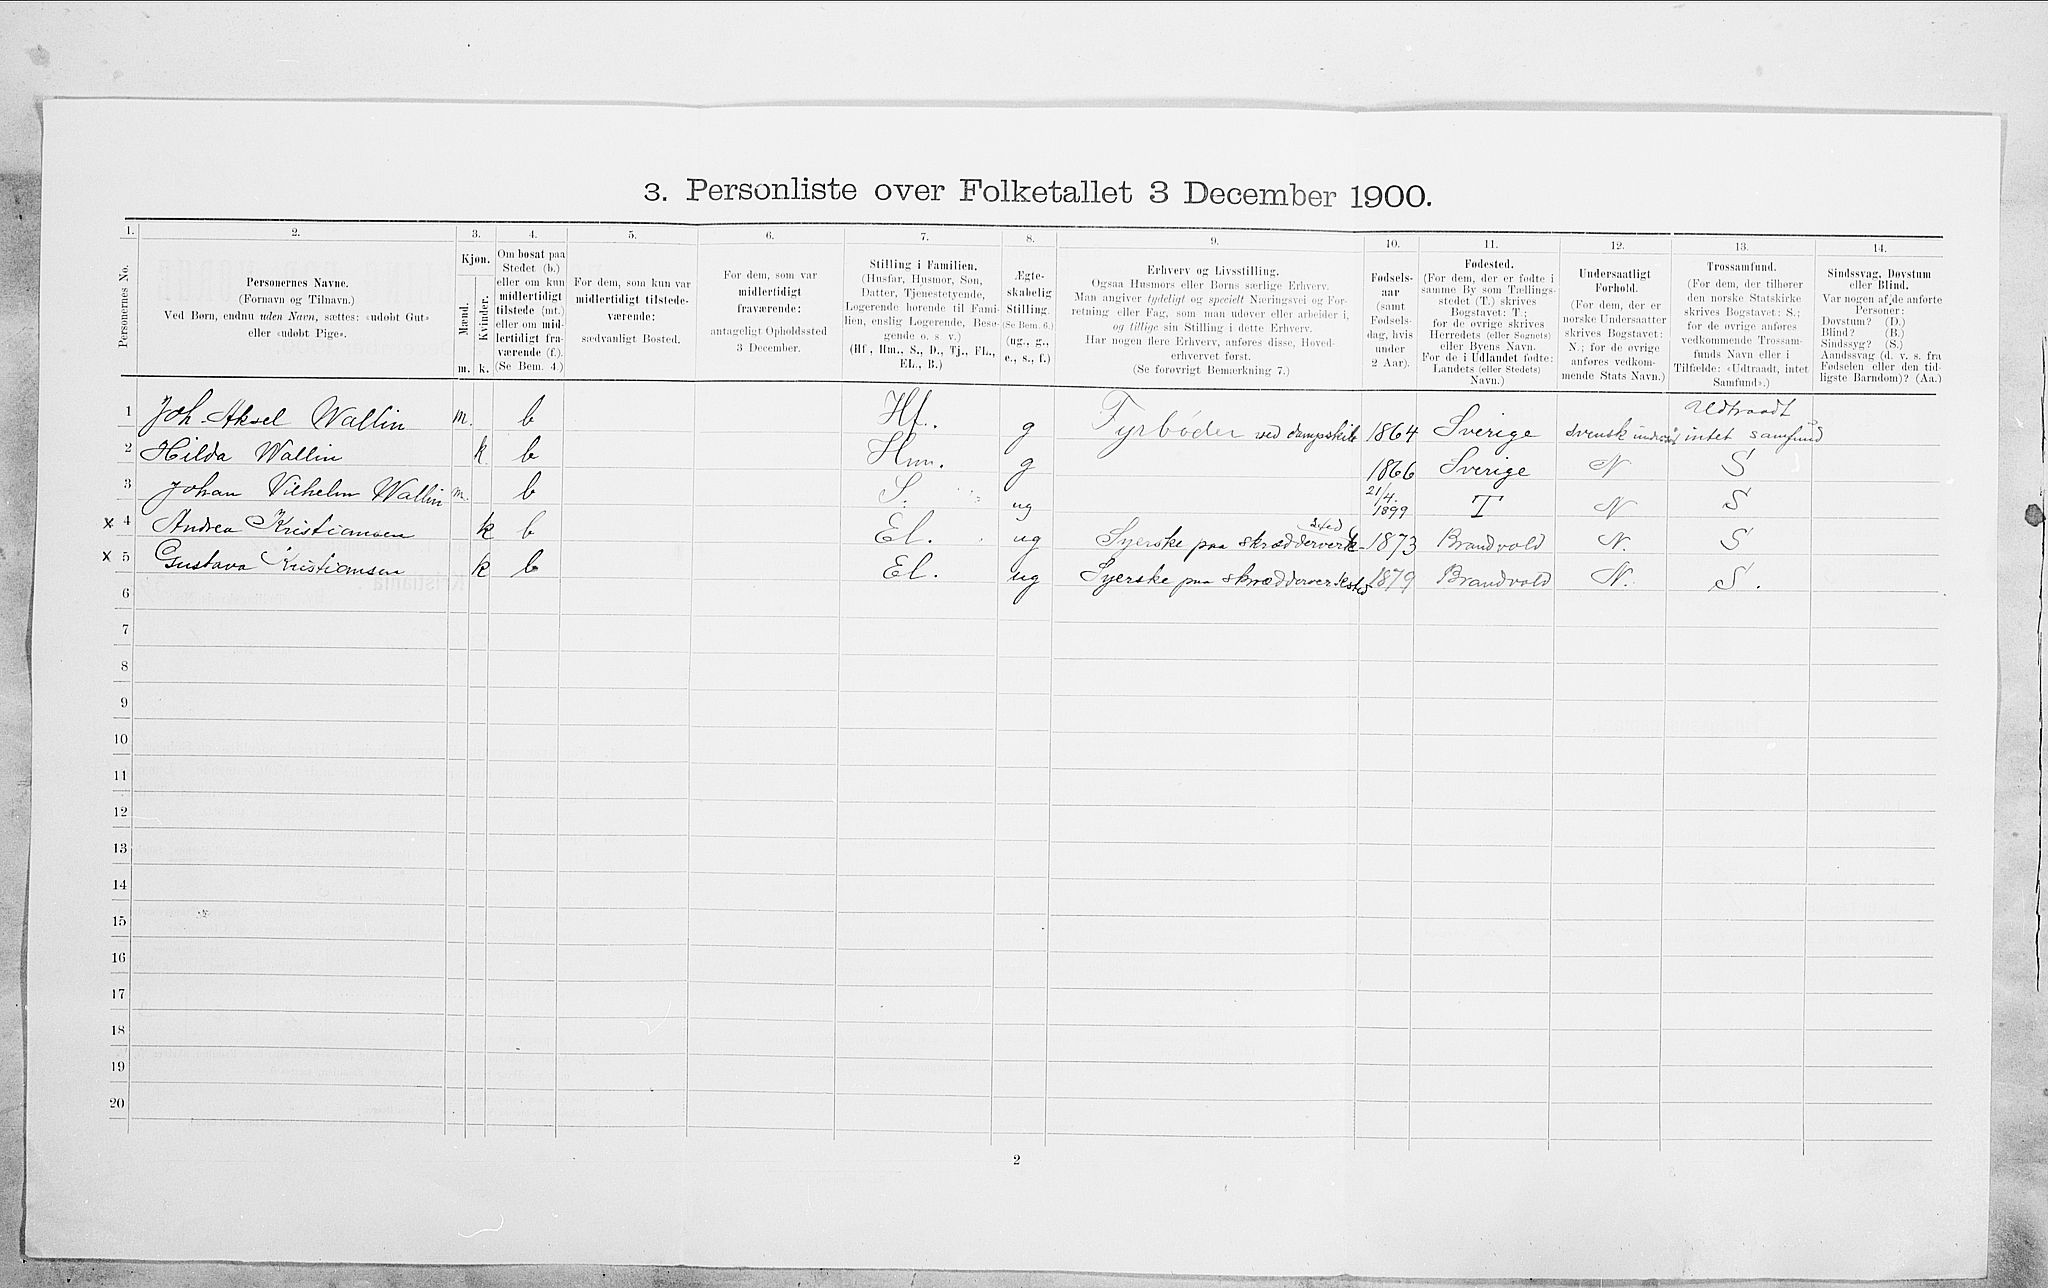 3. Personliste over Folketallet 3 December 1900.
1. 2. 3. 4. 5. 6. 7. 8. 9. 10. 11. 12. 13. 14.
Personernes No.
Personernes Navne.
(Fornavn og Tilnavn.)
Ved Børn, endnu uden Navn, sættes: «udøbt Gut»
eller «udøbt Pige».
Kjøn.
Mænd.
Kvinder.
m. k.
Om bosat paa
Stedet (b.)
eller om kun
midlertidigt
tilstede (mt.)
eller om mid-
lertidigt fra-
værende (f.).
(Se Bem. 4.)
For dem, som kun var
midlertidigt tilstede-
værende:
sædvanligt Bosted.
For dem, som var
midlertidigt
fraværende:
antageligt Opholdssted
3 December.
Stilling i Familien.
(Husfar, Husmor, Søn,
Datter, Tjenestetyende,
Logerende hørende til Fami-
lien, enslig Logerende, Besø-
gende o. s. v.)
(Hf., Hm., S., D., Tj., FL.,
EL., B.)
Ægte-
skabelig
Stilling.
(Se Bem. 6.)
(ug., g.,
e., s., f.)
Erhverv og Livsstilling.
Ogsaa Husmors eller Børns særlige Erhverv.
Man angiver tydeligt og specielt Næringsvei og For-
retning eller Fag, som man udøver eller arbeider i,
og tillige sin Stilling i dette Erhverv.
Har nogen flere Erhverv, anføres disse, Hoved-
erhvervet først.
(Se forøvrigt Bemærkning 7.)
Fødsels-
aar
(samt
Fødsels-
dag, hvis
under
2 Aar).
Fødested.
(For dem, der er fødte i
samme By som Tællings-
stedet (T.) skrives
Bogstavet: T.;
for de øvrige skrives
Herredets (eller Sognets)
eller Byens Navn.
For de i Udlandet fødte:
Landets (eller Stedets)
Navn.)
Undersaatligt
Forhold.
(For dem, der er
norske Undersaatter
skrives Bogstavet:
N.; for de øvrige
anføres vedkom-
mende Stats Navn.)
Trossamfund.
(For dem, der tilhører
den norske Statskirke
skrives Bogstavet: S.;
for de øvrige anføres
vedkommende Trossam-
funds Navn eller i
Tilfælde: «Udtraadt, intet
Samfund».)
Sindssvag, Døvstum
eller Blind.
Var nogen af de anførte
Personer:
Døvstum? (D.)
Blind? (B.)
Sindssyg? (S.)
Aandssvag (d. v. s. fra
Fødselen eller den tid-
ligste Barndom)? (Aa.)
1 Joh. Aksel Wallin m. b Hf. g Fyrbøder ved dampskib 1864 Sverige svensk Udtraadt intet samfund
2 Hilda Wallin k b Hm. g 1866 Sverige N S
3 Johan Vilhelm Wallin m. b S. ug 21/4. 1899 T N S
x 4 Andrea Kristiansen k b El. ug Syerske paa skrædderverksted 1873 Brandvold N. S
x 5 Gustava Kristiansen k b El. ug Syerske paa skrædderverksted 1879 Brandvold N. S.
6
7
8
9
10
11
12
13
14
15
16
17
18
19
20
2